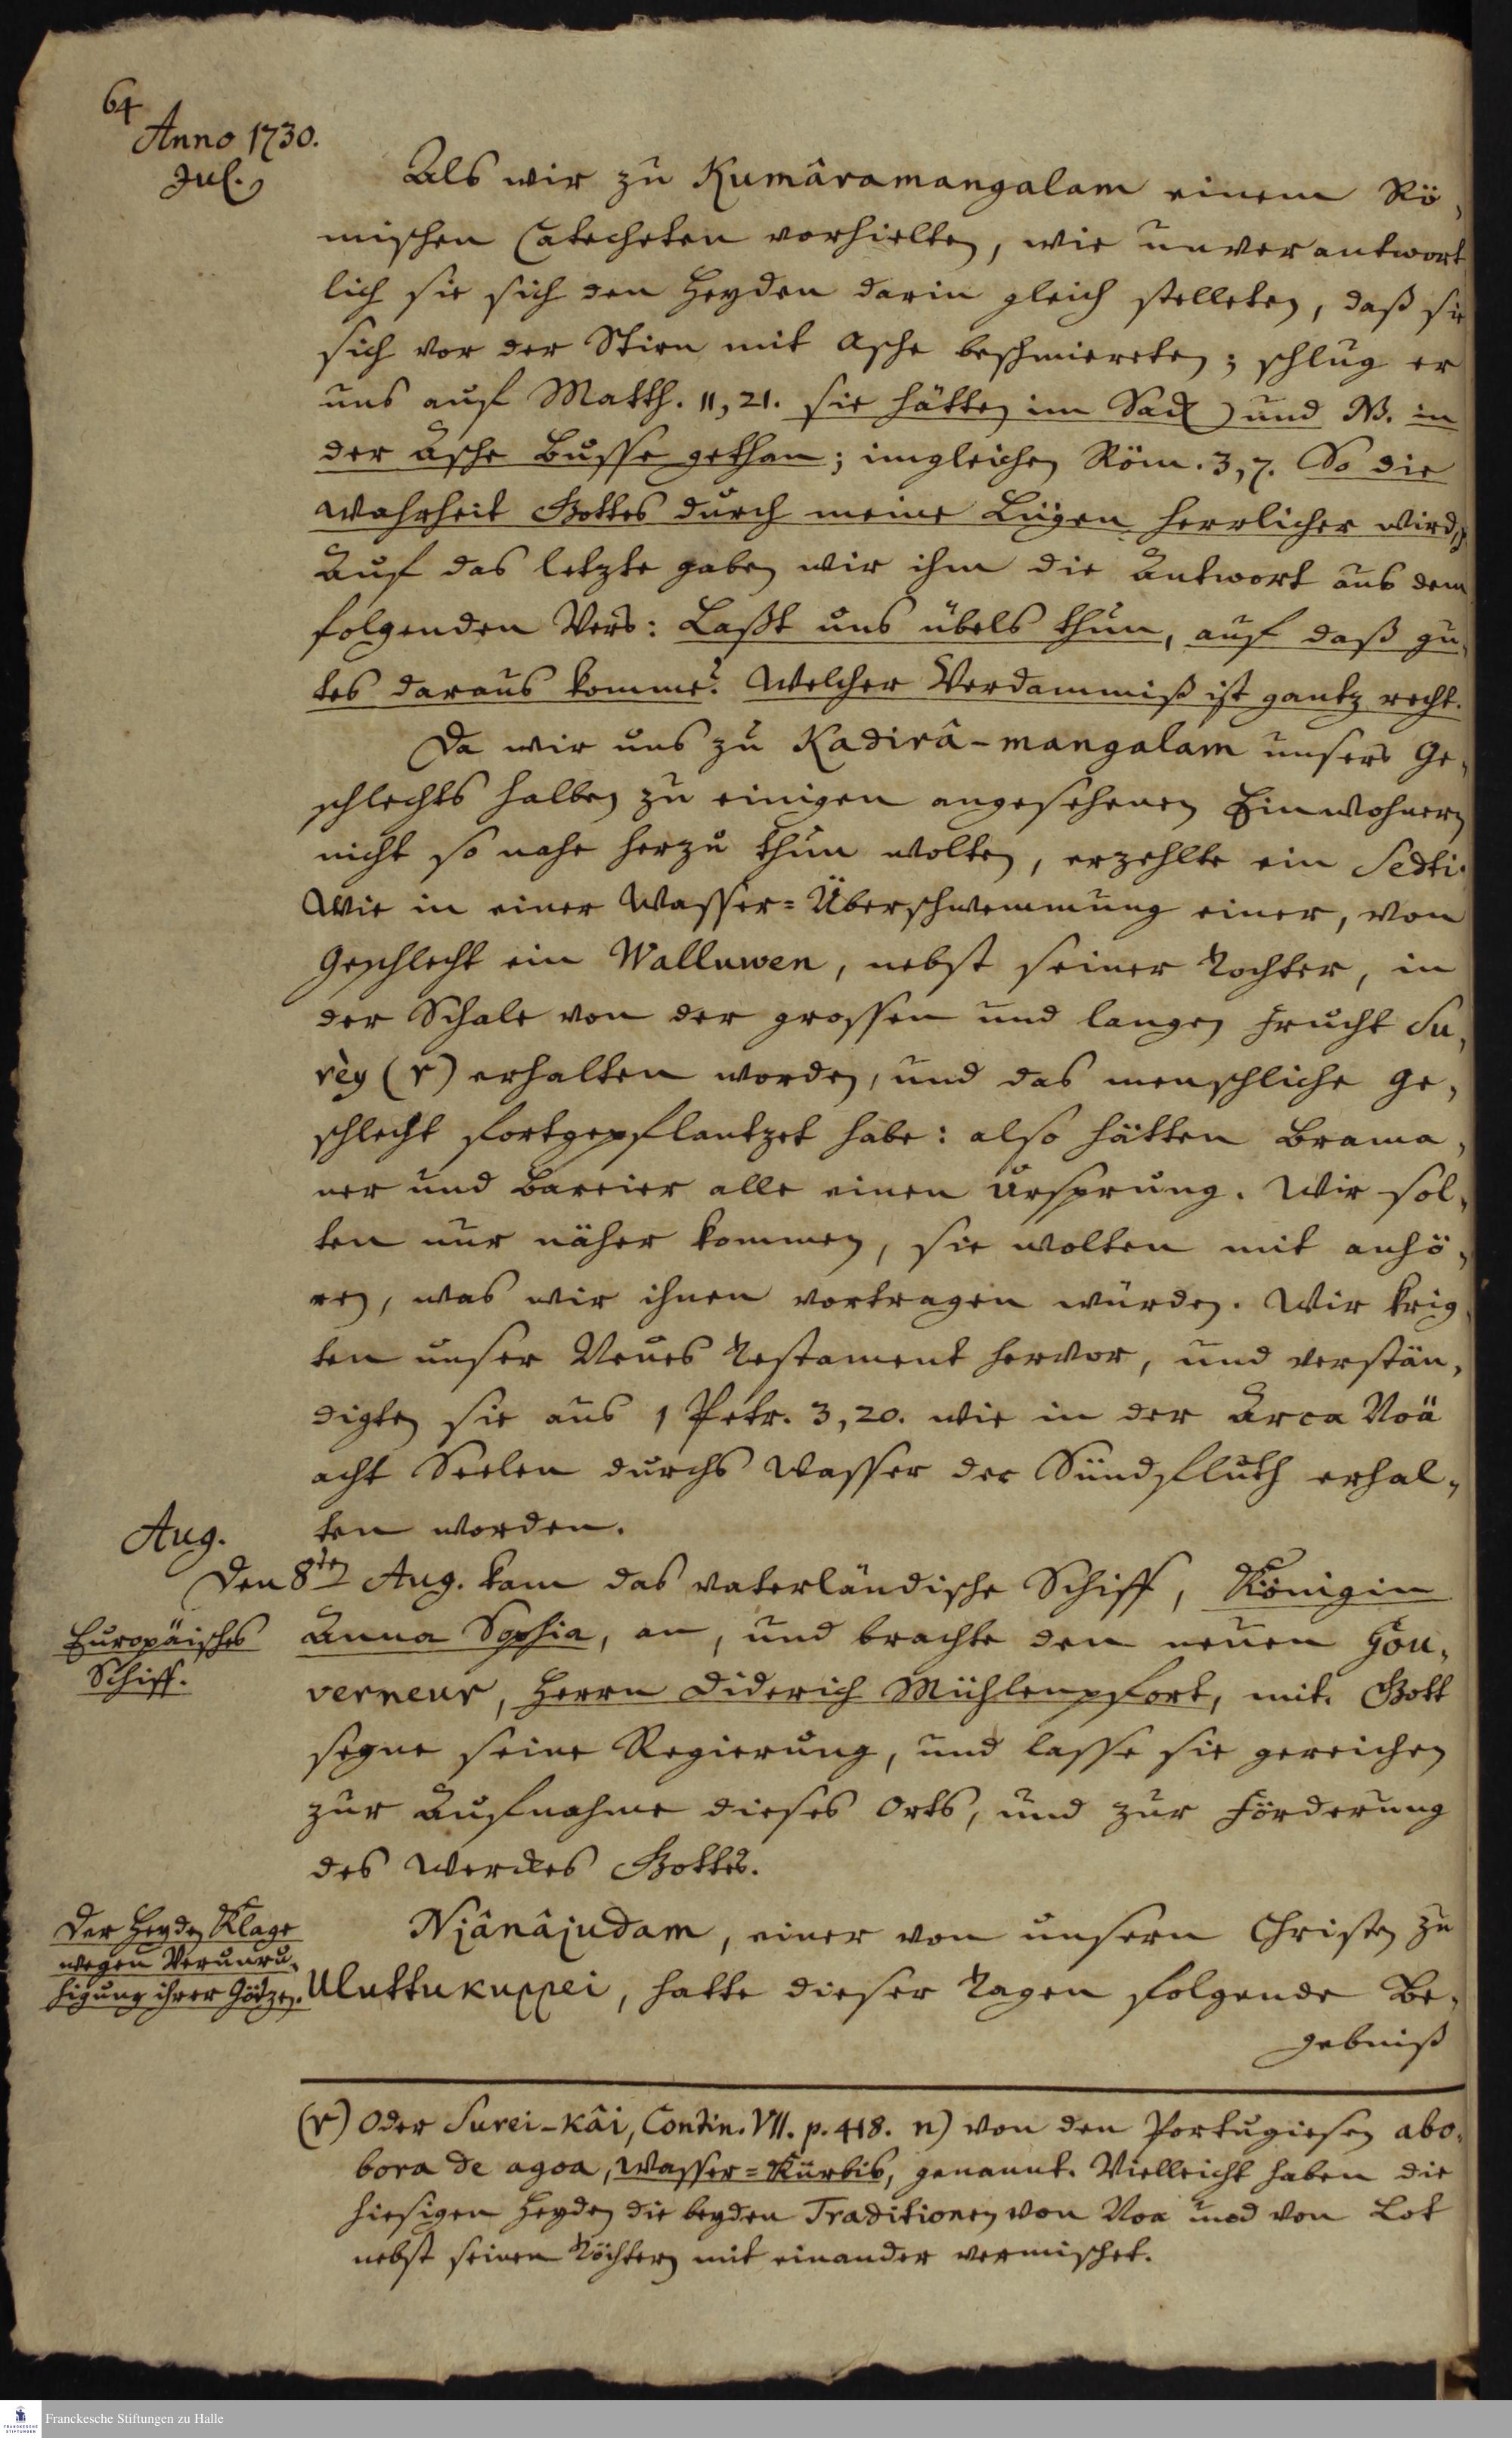 64
Anno 1730.
Jul.
Als wir zu Kumâramangalam einem Rö-
mischen Catecheten vorhielten, wie unverantwort
lich sie sich den Heyden darin gleich stelleten, daß sie
sich vor der Stirn mit Asche beschmiereten; schlug er
uns auf Matth. 11, 21. sie hätten im Sack und NB. in
der Asche Busse gethan; imgleichen Röm. 3, 7. So die
Wahrheit Gottes durch meine Lügen herrlicher wird,
Auf das letzte gaben wir ihm die Antwort aus dem
folgenden Vers: Laßt uns übels thun, auf daß gu-
tes daraus komme? Welcher Verdammniß ist gantz recht.
Da wir uns zu Kadirâ-mangalam unsers Ge-
schlechts halben zu einigen angesehenen Einwohnern
nicht so nahe herzu thun wolten, erzehlte ein Sedti.
Wie in einer Wasser=Überschwemmung einer, von
Geschlecht ein Walluwen, nebst seiner Tochter, in
der Schale von der grossen und langen Frucht Su-
rèy (r) erhalten worden, und das menschliche Ge-
schlecht fortgepflantzet habe: also hätten Brama-
ner und Bareier alle einen Ursprung. Wir sol-
ten nur näher kommen, sie wolten mit anhö-
ren, was wir ihnen vortragen würden. Wir krig-
ten unser Neues Testament hervor, und verstän-
digten sie aus 1 Petr. 3, 20. wie in der Arca Noä
acht Seelen durchs Wasser der Sündfluth erhal-
ten worden.
Aug.
Den 8ten Aug. kam das vaterländische Schiff, Königin
Europäisches
Schiff.
Anna Sophia, an, und brachte den neuen Gou-
verneur, Herrn Diderich Mühlenpfort, mit. Gott
segne seine Regierung, und lasse sie gereichen
zur Aufnahme dieses Orts, und zur Förderung
des Werckes Gottes.
Der Heyden Klage
wegen Verunru-
higung ihrer Götzen.
Njânâjudam, einer von unsern Christen zu
Uluttukuppei, hatte dieser Tagen folgende Be-
gebniß
(r) Oder Surei-kâi, Contin. VII. p. 418. n) von den Portugiesen abo-
bora de agoa, Wasser=Kürbis, genannt. Vielleicht haben die
hiesigen Heyden die beyden Traditionen von Noa und von Lot
nebst seinen Töchtern mit einander vermischet.
FRANCKESCHE
STIFTUNGEN
Franckesche Stiftungen zu Halle